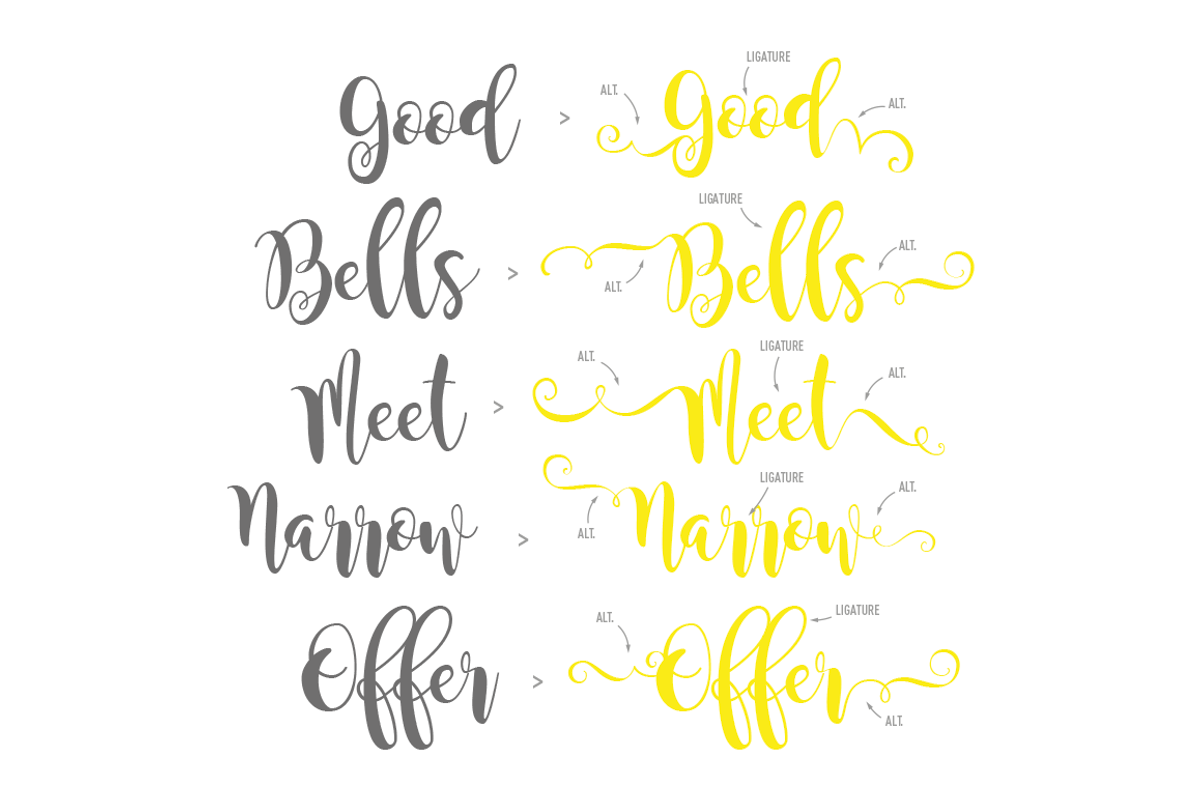 LIGATURE
ALT. ALT.
Good > Good
LIGATURE
Bells > Bells
ALT. ALT.
LIGATURE
ALT. ALT.
Meet > Meet
LIGATURE
ALT. ALT.
Narrow > Narrow
LIGATURE
ALT. ALT.
Offer > Offer